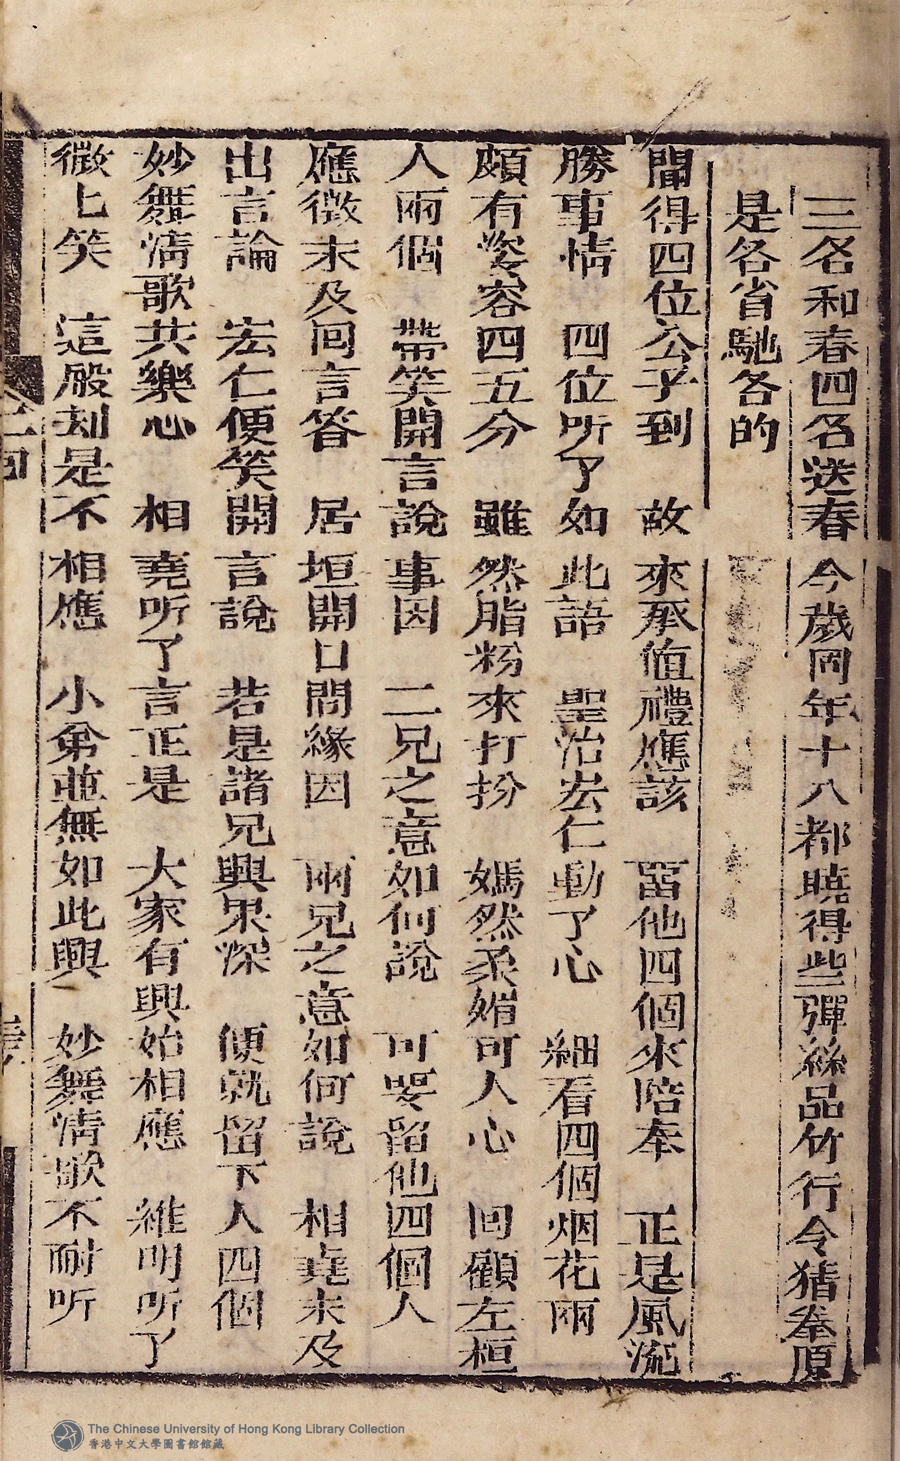 三名和春四名送春今歲同年十八都曉得些彈絲品竹行令猜拳原
是各省馳名的
聞得四位公子到　故來承值禮應該　留他四個來陪奉　正是風流
勝事情　四位听了如此語　聖治宏仁動了心　細看四個烟花兩
頗有姿容四五分　雖然脂粉來打扮　嫣然柔媚可人心　回顧左桓
人兩個　帶笑開言說事因　二兄之意如何說　可要留他四個人
應徵未及回言答　居垣開口問緣因　兩兄之意如何說　相堯未及
出言論　宏仁便笑開言說　若是諸兄興果深　便就留下人四個
妙舞清歌共樂心　相堯听了言正是　大家有興始相應　維明听了
微上笑　這般却是不相應　小弟並無如此興　妙舞清歌不耐听
The Chinese University of Hong Kong Library Collection
香港中文大學圖書館館藏